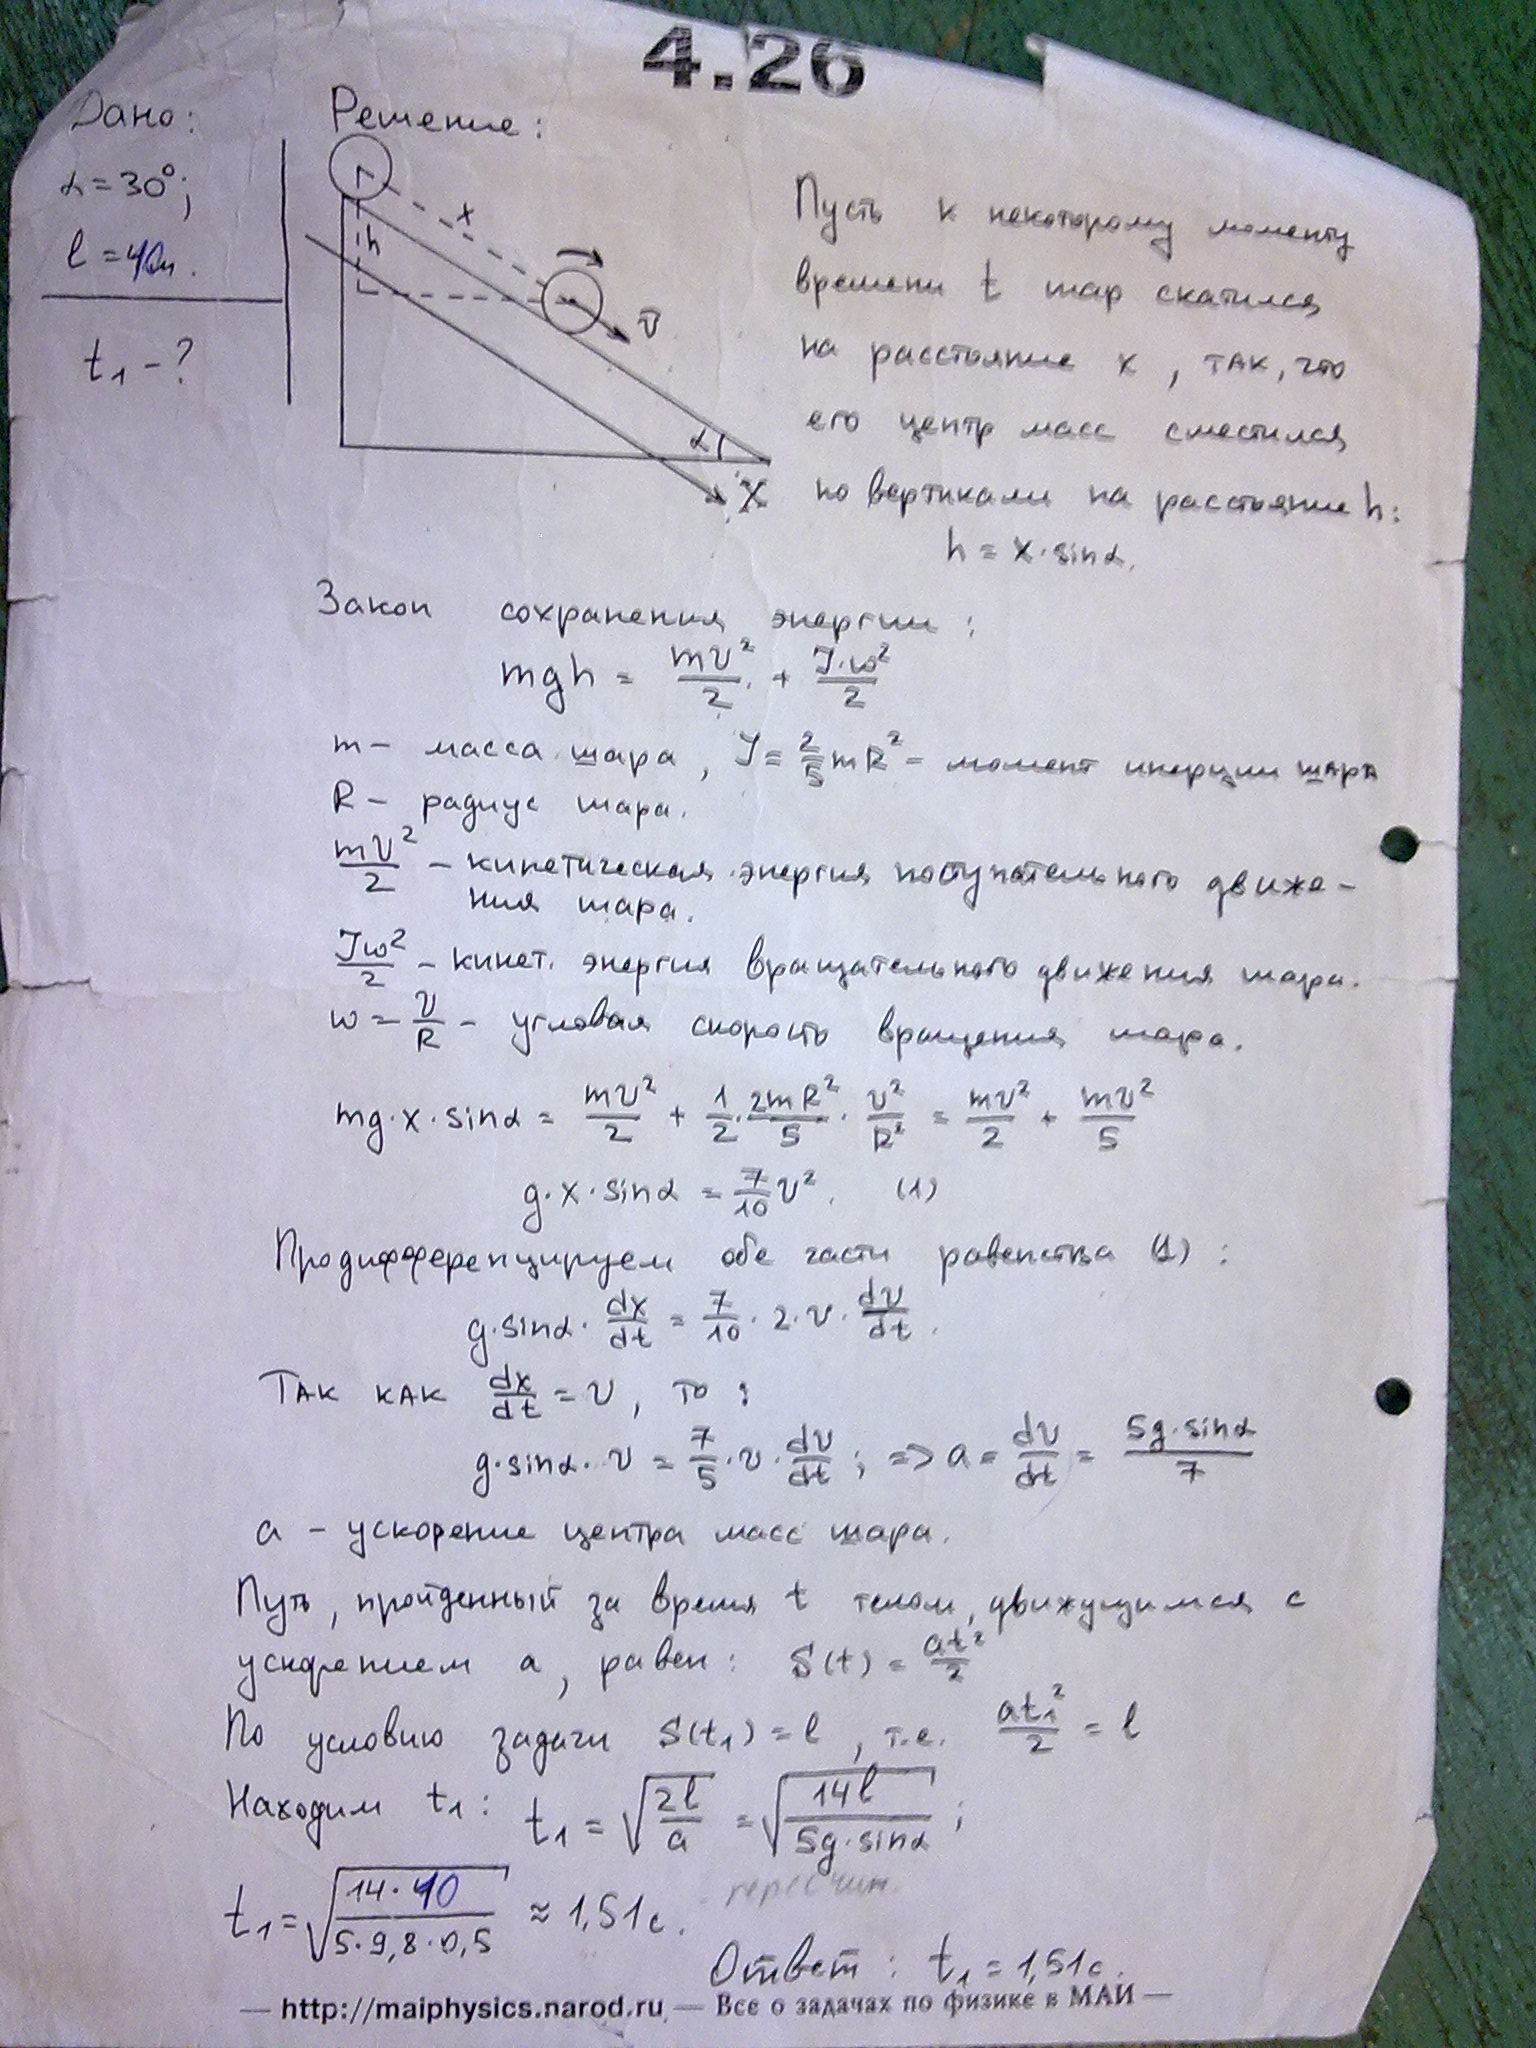 4.26
Дано:
α = 30°;
l = 40м.
t₁ – ?
Решение:
x
h
v̄
α
X
Пусть к некоторому моменту
времени t шар скатился
на расстояние x, так, что
его центр масс сместился
по вертикали на расстояние h:
h = x·sinα.
Закон сохранения энергии:
mgh = mv²/2 + J·ω²/2
m – масса шара, J = 2/5 mR² – момент инерции шара
R – радиус шара.
mv²/2 – кинетическая энергия поступательного движе-
ния шара.
Jω²/2 – кинет. энергия вращательного движения шара.
ω = v/R – угловая скорость вращения шара.
mg·x·sinα = mv²/2 + 1/2·2mR²/5·v²/R² = mv²/2 + mv²/5
g·x·sinα = 7/10 v². (1)
Продифференцируем обе части равенства (1):
g·sinα·dx/dt = 7/10·2·v·dv/dt.
Так как dx/dt = v, то:
g·sinα·v = 7/5·v·dv/dt; => a = dv/dt = 5g·sinα/7
a – ускорение центра масс шара.
Путь, пройденный за время t телом, движущимся с
ускорением a, равен: S(t) = at²/2
По условию задачи S(t₁) = l, т.е. at₁²/2 = l
Находим t₁: t₁ = √(2l/a) = √(14l/(5g·sinα));
t₁ = √(14·40/(5·9,8·0,5)) ≈ 1,51с.
Ответ: t₁ = 1,51с.
— http://maiphysics.narod.ru — Все о задачах по физике в МАИ —